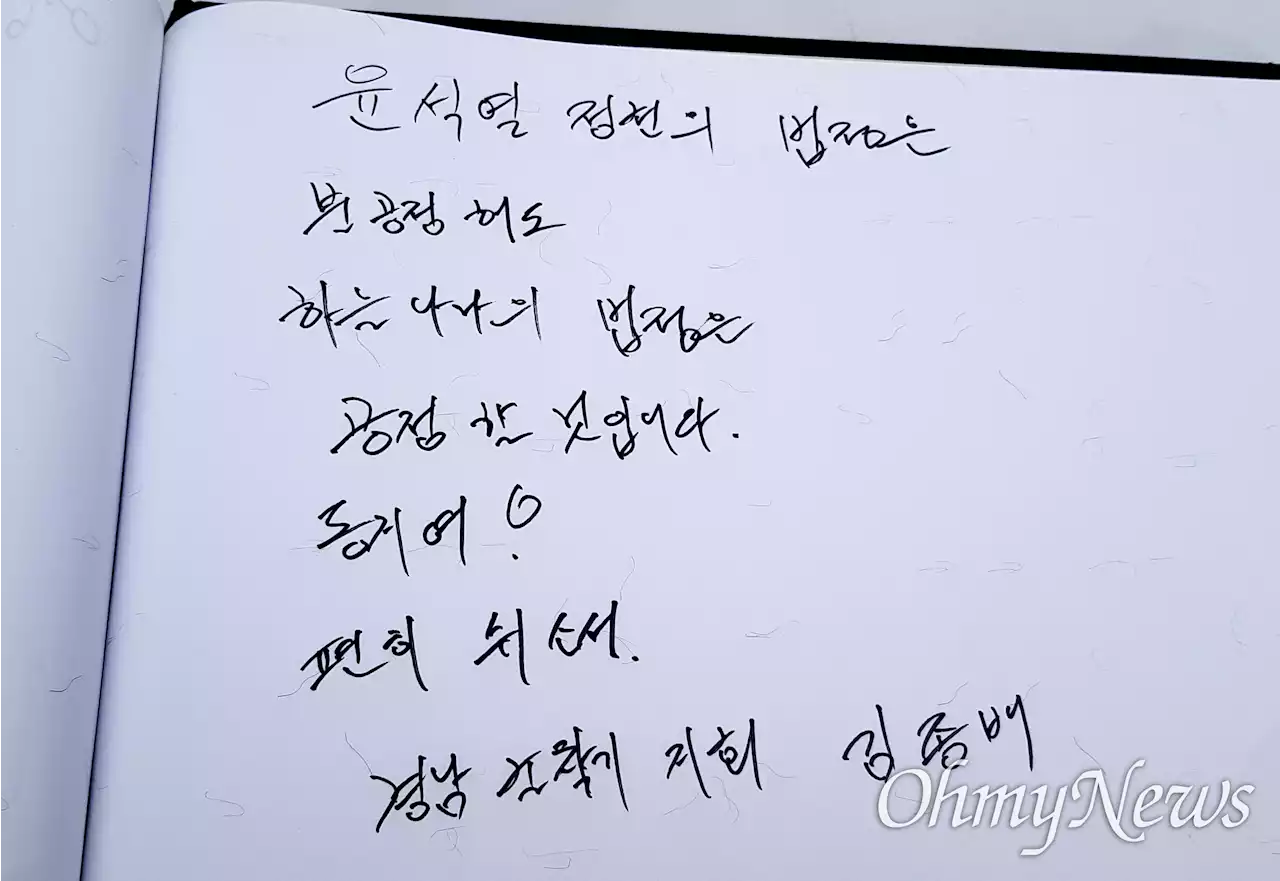 윤석열 정권의 법정은
불공정 해도
하늘나라의 법정은
공정 할 것입니다.
동지여!
편히 쉬소서.
경남 건설기 지회 김종배
OhmyNews